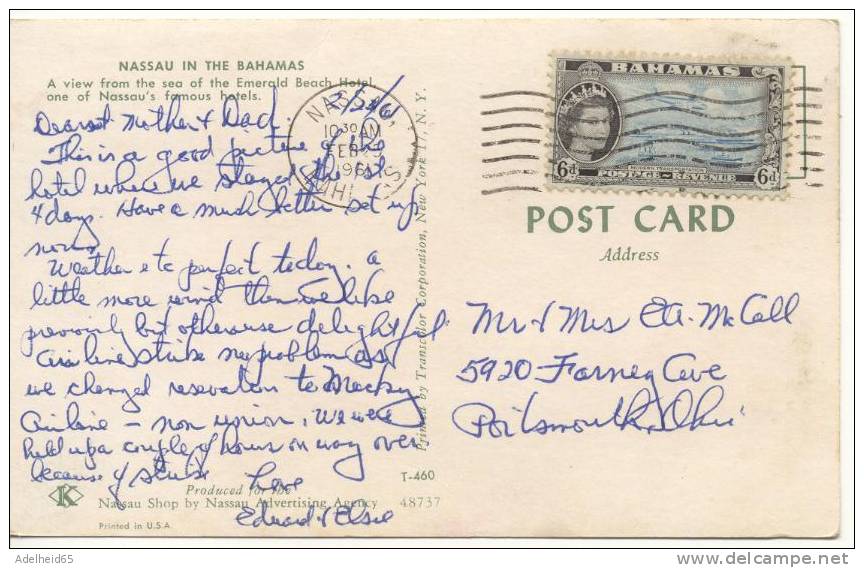 NASSAU IN THE BAHAMAS
A view from the sea of the Emerald Beach Hotel,
one of Nassau's famous hotels.
Dearest Mother & Dad:
This is a good picture of the
hotel where we stayed the 1st
4 days. Have a much better set up
now.
Weather etc perfect today. a
little more wind than we like
previously but otherwise delightful.
Air line strike no problem as
we changed reservation to Mackey
Airline – non union. We were
held up a couple of hours on way over
because of strike
Love
Edward & Elsie
Produced for the
Nassau Shop by Nassau Advertising Agency
Printed in U.S.A.
K
T-460
48737
Printed by Transcolor Corporation, New York 17, N. Y.
NASSAU
10 30 AM
FEB
196
BAHAMAS
6d
POSTAGE & REVENUE
6d
POST CARD
Address
Mr & Mrs E.A. McCall
5920 Farney Ave
Portsmouth, Ohio
Adelheid65
delcampe.net